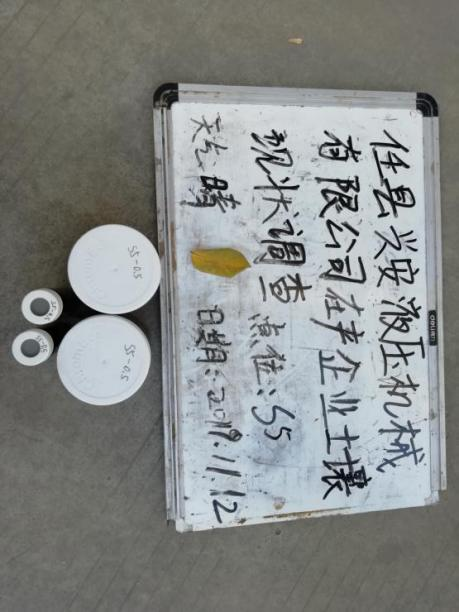 任县兴安液压机械
有限公司在产企业土壤
现状调查 点位:S5
天气:晴 日期:2019.11.12
deli
S5-0.5
S5-0.5